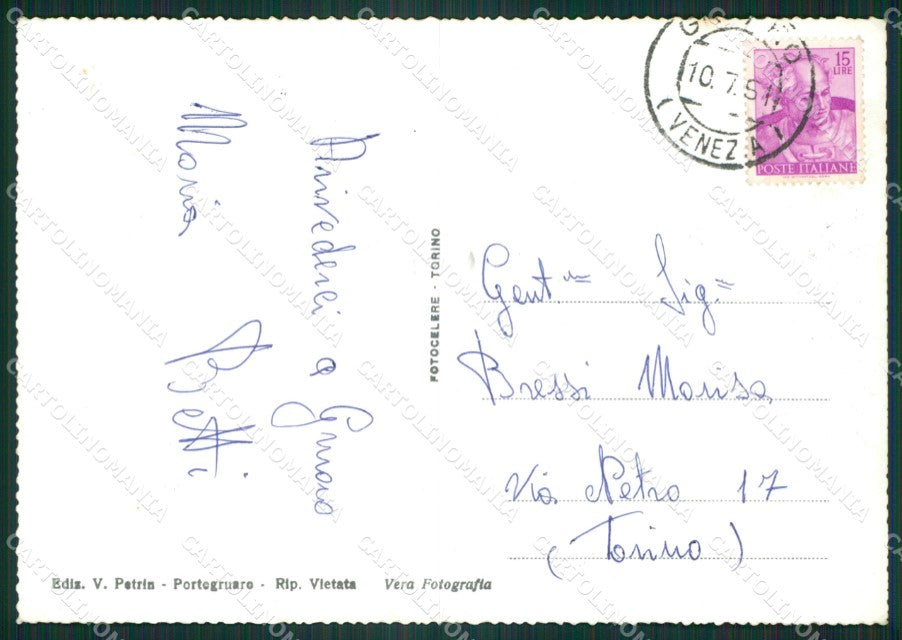 Arrivederci a Gruaro
Maria Betti
FOTOCELERE - TORINO
10.7.61
(VENEZIA)
15
LIRE
POSTE ITALIANE
Gent.ma Sig.na
Bressi Marisa
Via Petro 17
(Torino)
Ediz. V. Petrin - Portogruaro - Rip. Vietata Vera Fotografia
CARTOLINOMANIA